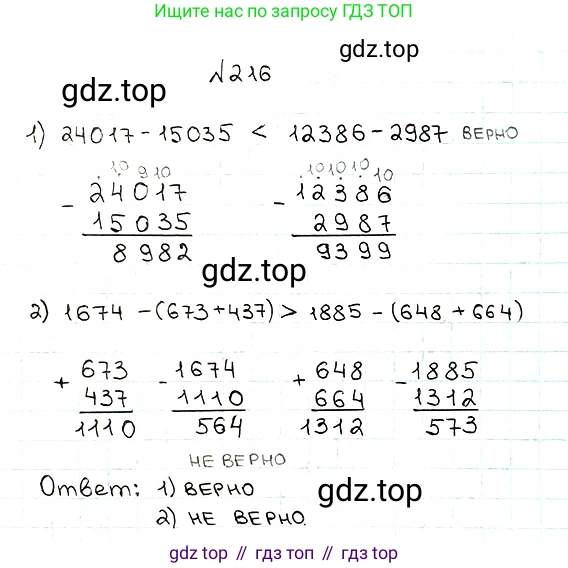 Ищите нас по запросу ГДЗ ТОП
gdz.top
№216
gdz.top
1) 24017-15035 < 12386-2987 ВЕРНО
10 9 10
10 10 10 10
- 24017
15035
8982
- 12386
2987
9399
gdz.top
2) 1674 -(673+437) > 1885 - (648 + 664)
+ 673
437
1110
- 1674
1110
564
+ 648
664
1312
- 1885
1312
573
НЕ ВЕРНО
Ответ: 1) ВЕРНО
gdz.top
2) НЕ ВЕРНО.
gdz top // гдз топ // gdz.top // гдз топ